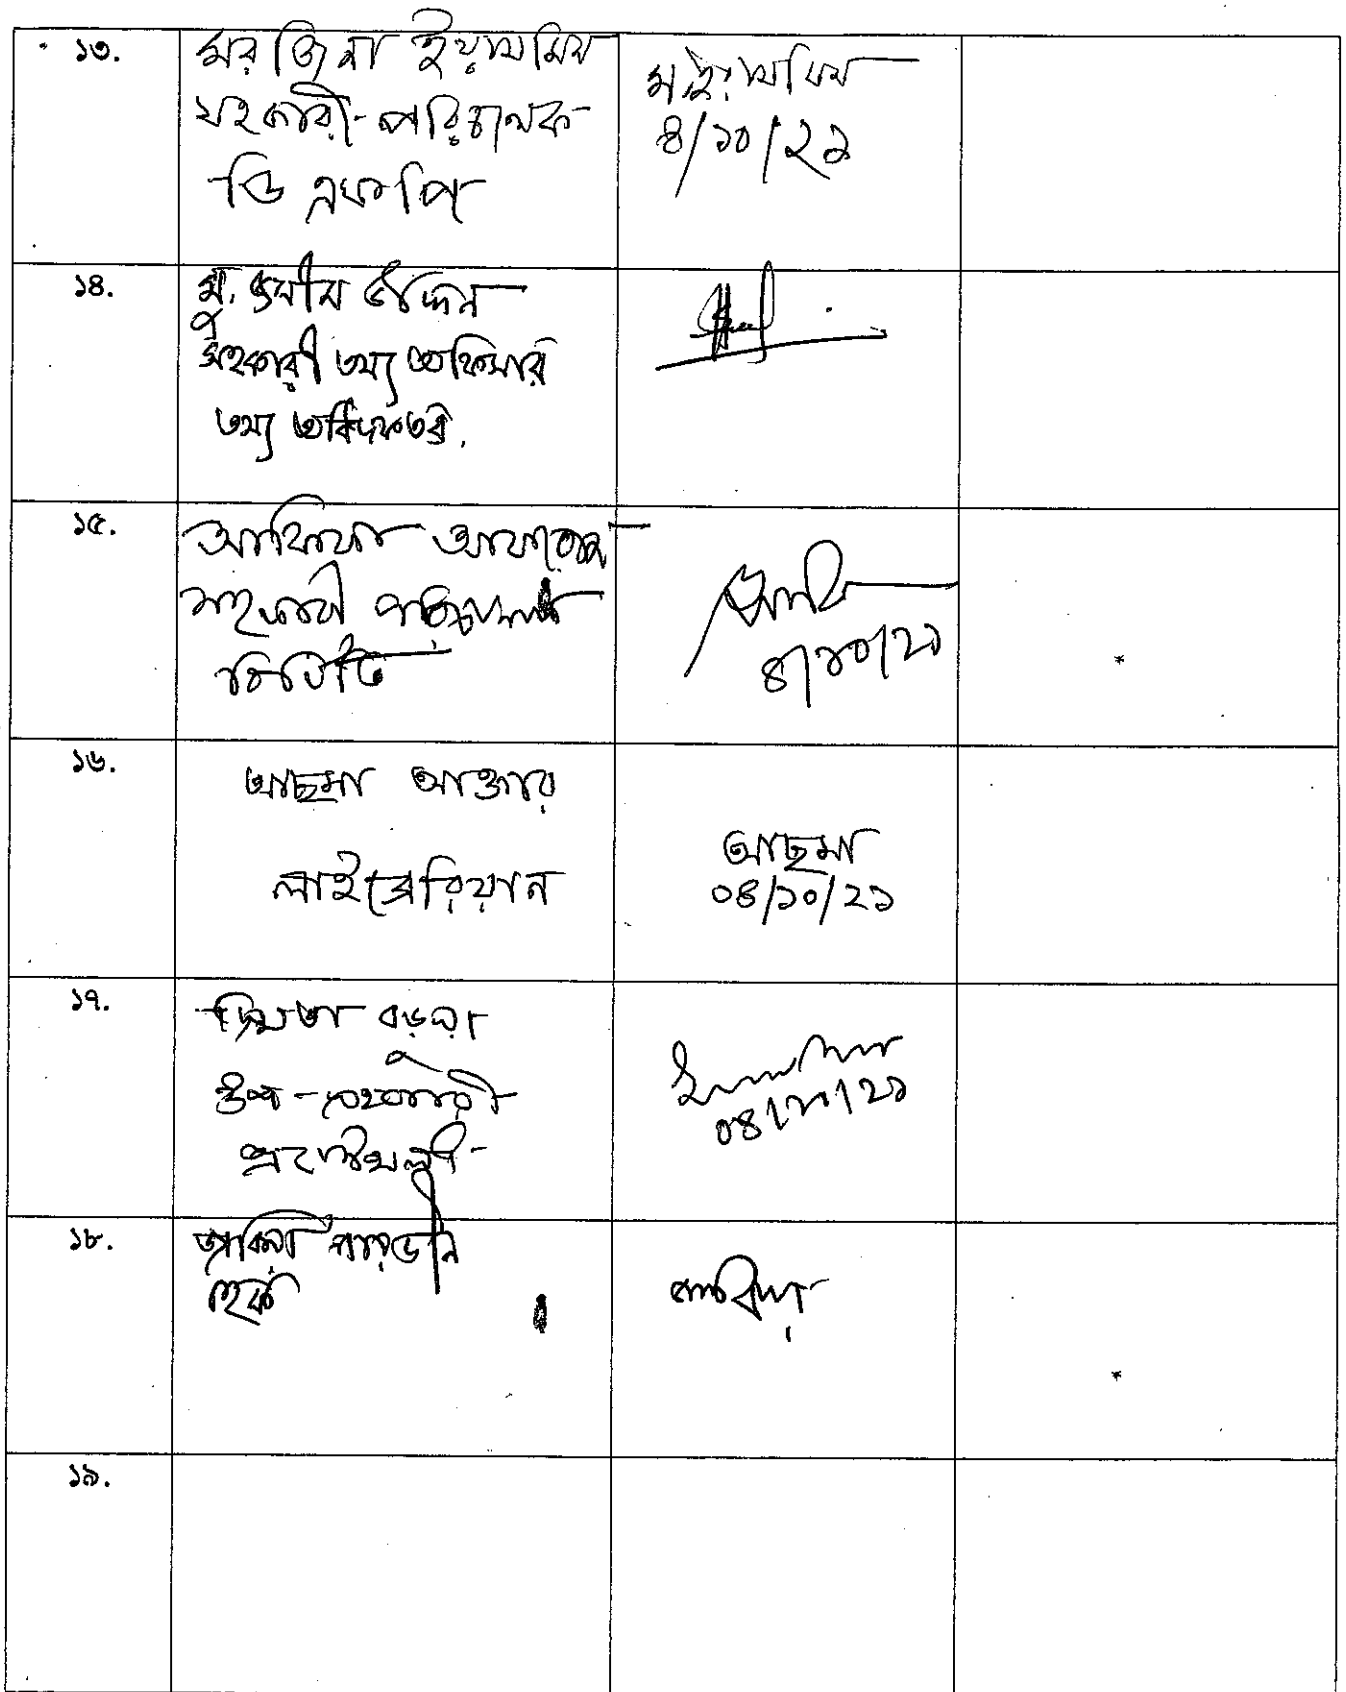 ১৩.
মরজিনা ইয়াসমিন
সহকারী-পরিচালক
ডি এফ পি
ম. ইয়াসমিন
৪/১০/২১
১৪.
মু. জসীম উদ্দিন
সহকারী তথ্য অফিসার
তথ্য অধিদফতর.
১৫.
আফিফা আফরোজ
সহকারী পরিচালক
বিসিটি
আফি
৪/১০/২১
১৬.
আছমা আক্তার
লাইব্রেরিয়ান
আছমা
০৪/১০/২১
১৭.
বড়ুয়া
উপ-সহকারী
প্রকৌশলী
০৪/১০/২১
১৮.
জাকিয়া পারভীন
জাকিয়া
১৯.